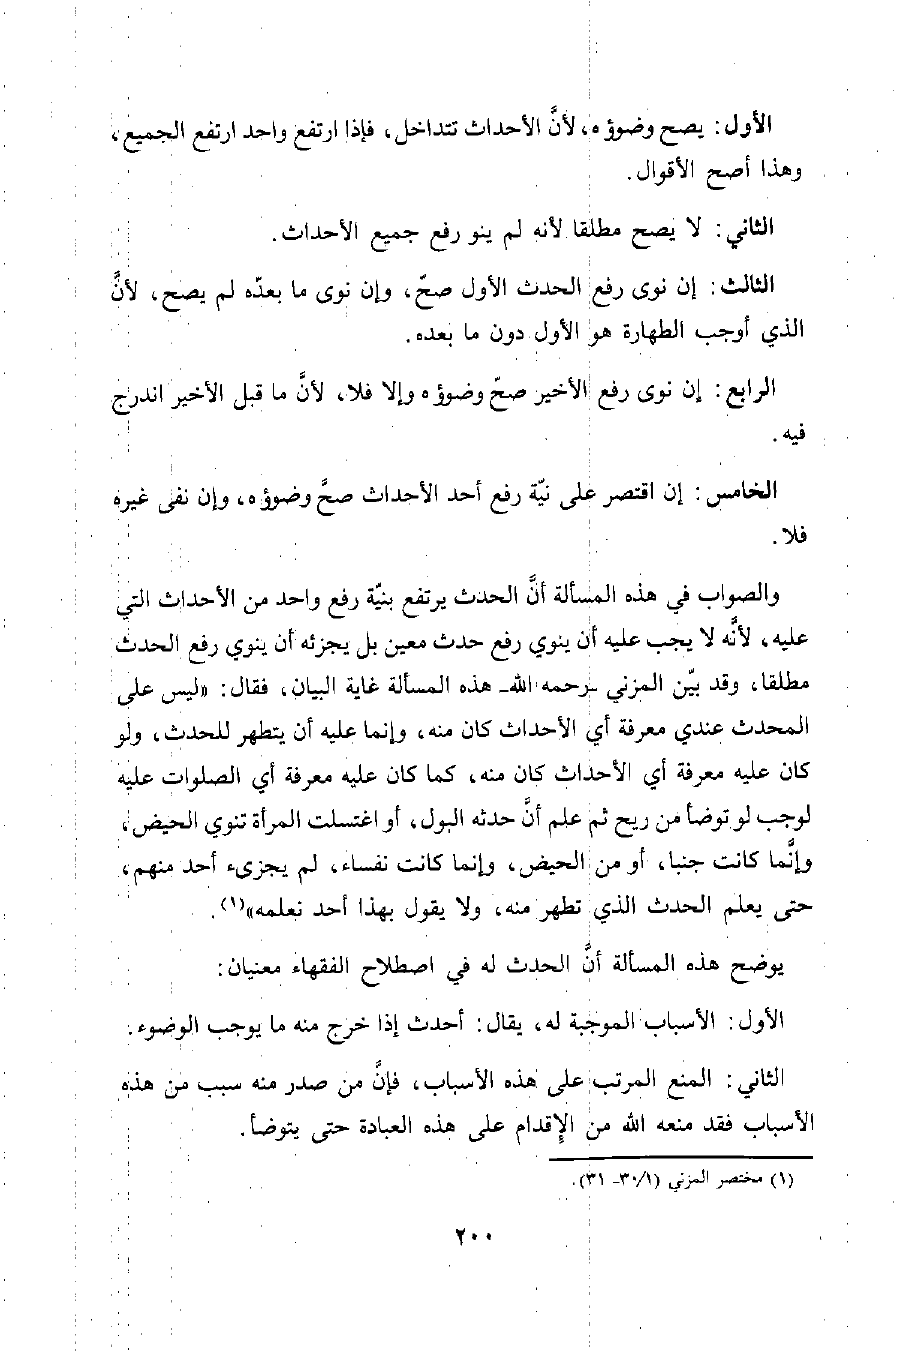 الأول: يصح وضوؤه، لأنَّ الأحداث تتداخل، فإذا ارتفع واحد ارتفع الجميع،
وهذا أصح الأقوال.
الثاني: لا يصح مطلقا لأنه لم ينو رفع جميع الأحداث.
الثالث: إن نوى رفع الحدث الأول صحّ، وإن نوى ما بعدّه لم يصح، لأنَّ
الذي أوجب الطهارة هو الأول دون ما بعده.
الرابع: إن نوى رفع الأخير صحّ وضوؤه وإلا فلا، لأنَّ ما قبل الأخير اندرج
فيه.
الخامس: إن اقتصر على نيّة رفع أحد الأحداث صحَّ وضوؤه، وإن نفى غيره
فلا.
والصواب في هذه المسألة أنَّ الحدث يرتفع بنيّة رفع واحد من الأحداث التي
عليه، لأنَّه لا يجب عليه أن ينوي رفع حدث معين بل يجزئه أن ينوي رفع الحدث
مطلقا، وقد بيّن المزني -رحمه الله- هذه المسألة غاية البيان، فقال: «ليس على
المحدث عندي معرفة أي الأحداث كان منه، وإنما عليه أن يتطهر للحدث، ولو
كان عليه معرفة أي الأحداث كان منه، كما كان عليه معرفة أي الصلوات عليه
لوجب لو توضأ من ريح ثم علم أنَّ حدثه البول، أو اغتسلت المرأة تنوي الحيض،
وإنَّما كانت جنبا، أو من الحيض، وإنما كانت نفساء، لم يجزىء أحد منهم،
حتى يعلم الحدث الذي تطهر منه، ولا يقول بهذا أحد نعلمه»(١).
يوضح هذه المسألة أنَّ الحدث له في اصطلاح الفقهاء معنيان:
الأول: الأسباب الموجبة له، يقال: أحدث إذا خرج منه ما يوجب الوضوء.
الثاني: المنع المرتب على هذه الأسباب، فإنَّ من صدر منه سبب من هذه
الأسباب فقد منعه الله من الإقدام على هذه العبادة حتى يتوضأ.
(١) مختصر المزني (١/ ٣٠- ٣١).
٢٠٠